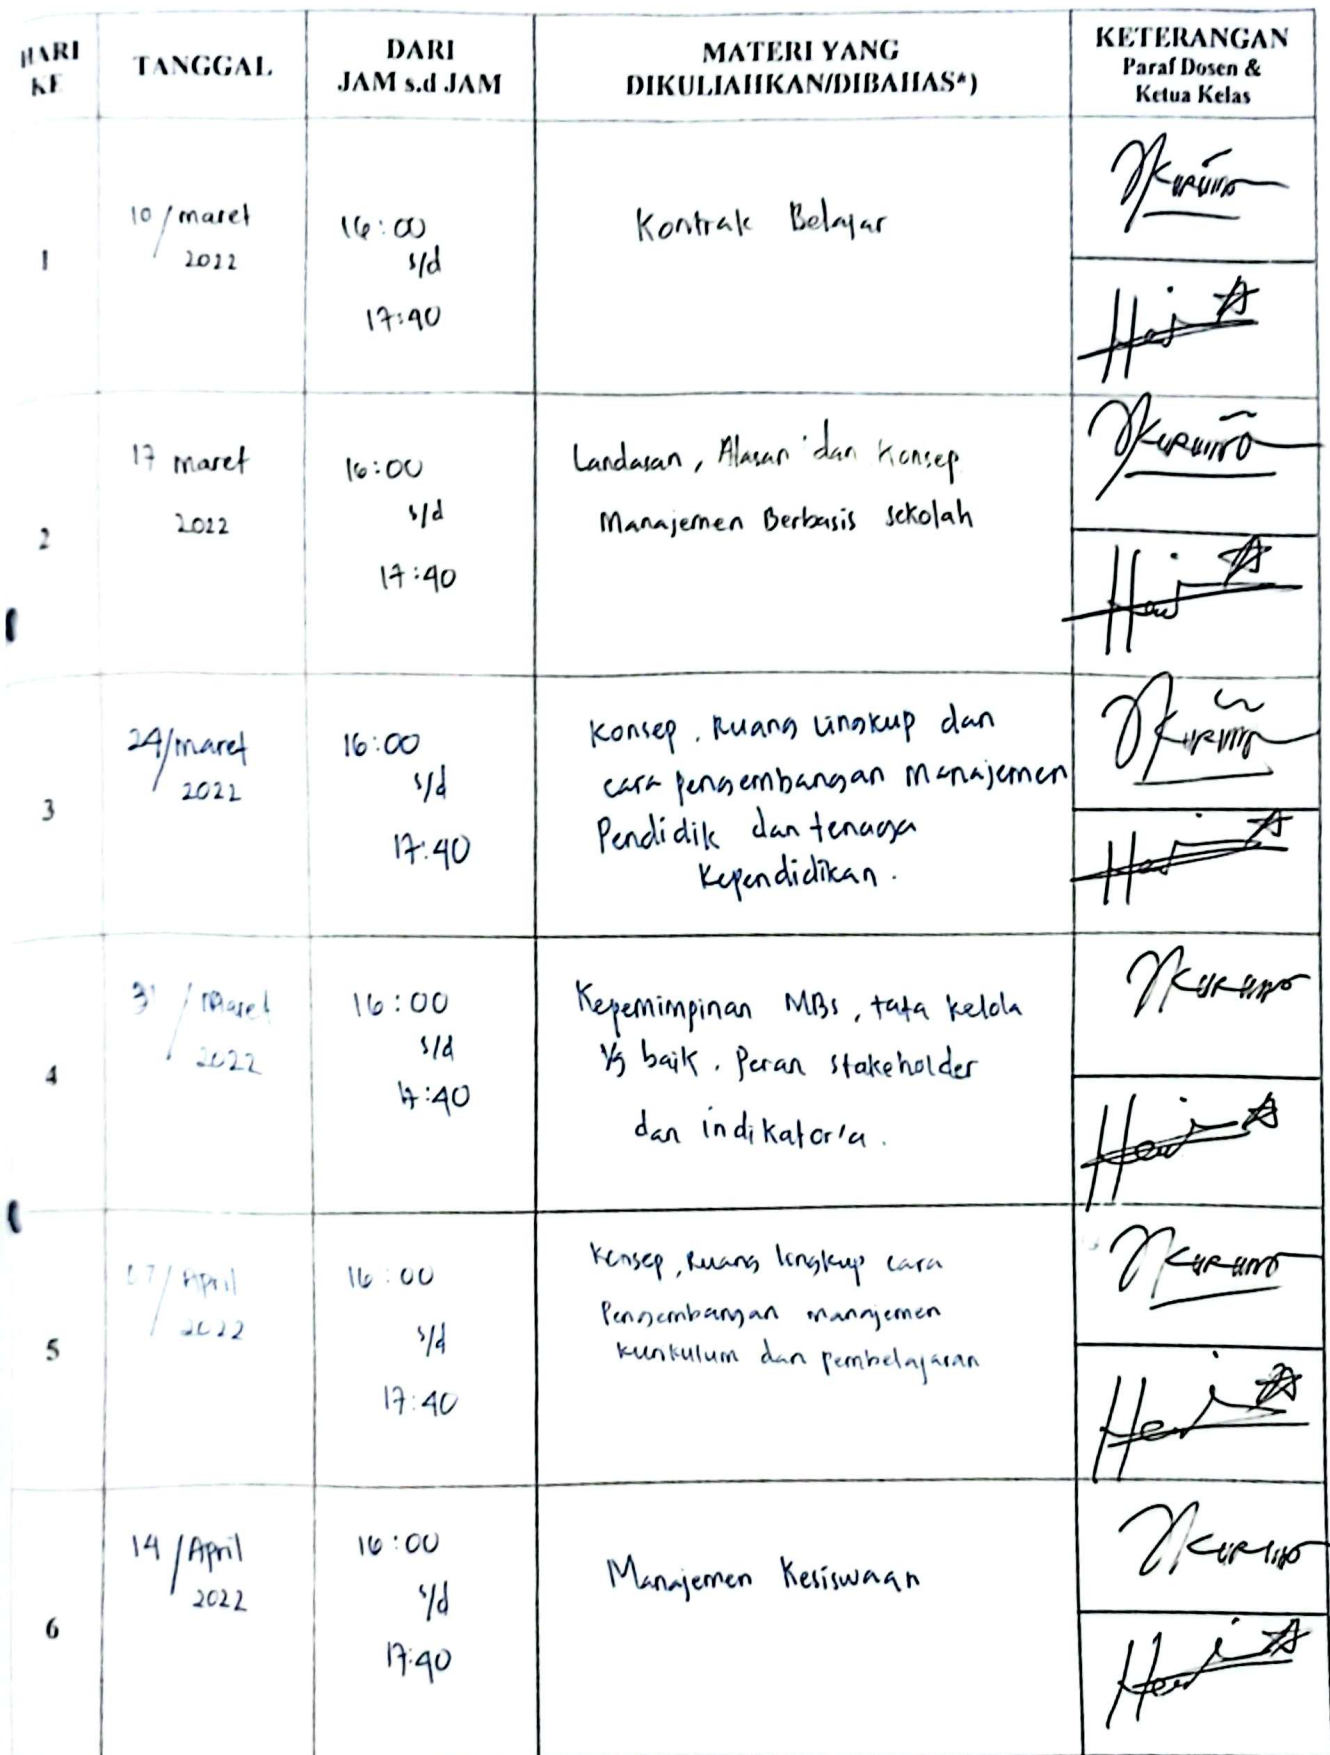 HARI KE
TANGGAL
DARI
JAM s.d JAM
MATERI YANG
DIKULIAHKAN/DIBAHAS*)
KETERANGAN
Paraf Dosen &
Ketua Kelas
1
10/maret
2022
16:00
s/d
17:40
Kontrak Belajar
2
17 maret
2022
16:00
s/d
17:40
Landasan, Alasan dan Konsep
Manajemen Berbasis sekolah
3
24/maret
2022
16:00
s/d
17:40
Konsep, Ruang Lingkup dan
cara pengembangan manajemen
Pendidik dan tenaga
Kependidikan.
4
31/Maret
2022
16:00
s/d
17:40
Kepemimpinan MBS, tata kelola
yg baik, Peran stakeholder
dan indikator'a.
5
07/April
2022
16:00
s/d
17:40
Konsep, Ruang lingkup cara
Pengembangan manajemen
kurikulum dan pembelajaran
6
14/April
2022
16:00
s/d
17:40
Manajemen Kesiswaan